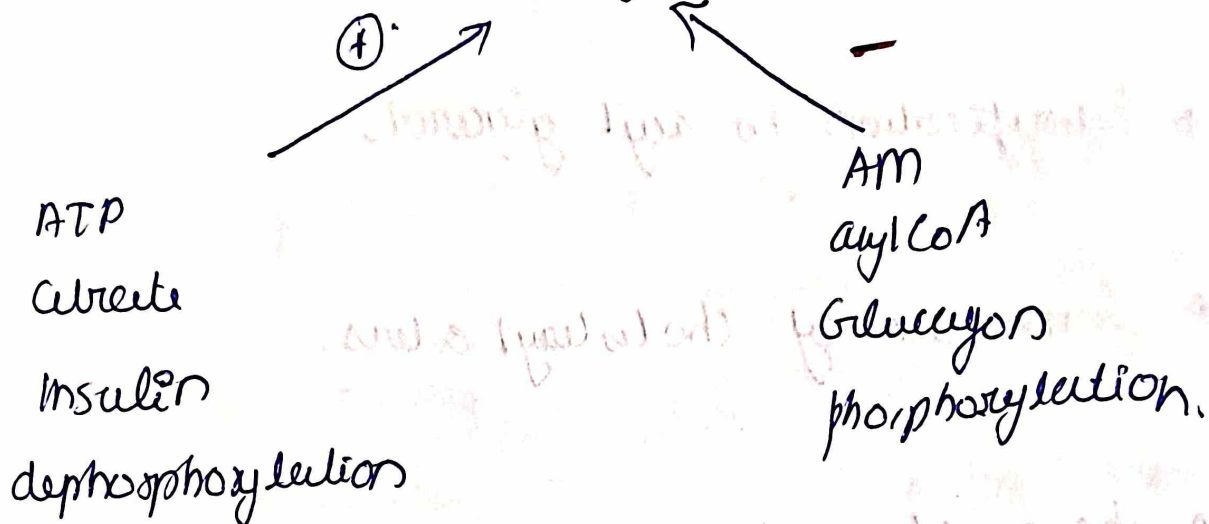 +
-
ATP
Citrate
Insulin
dephosphorylation
AM
acyl CoA
Glucagon
phosphorylation.